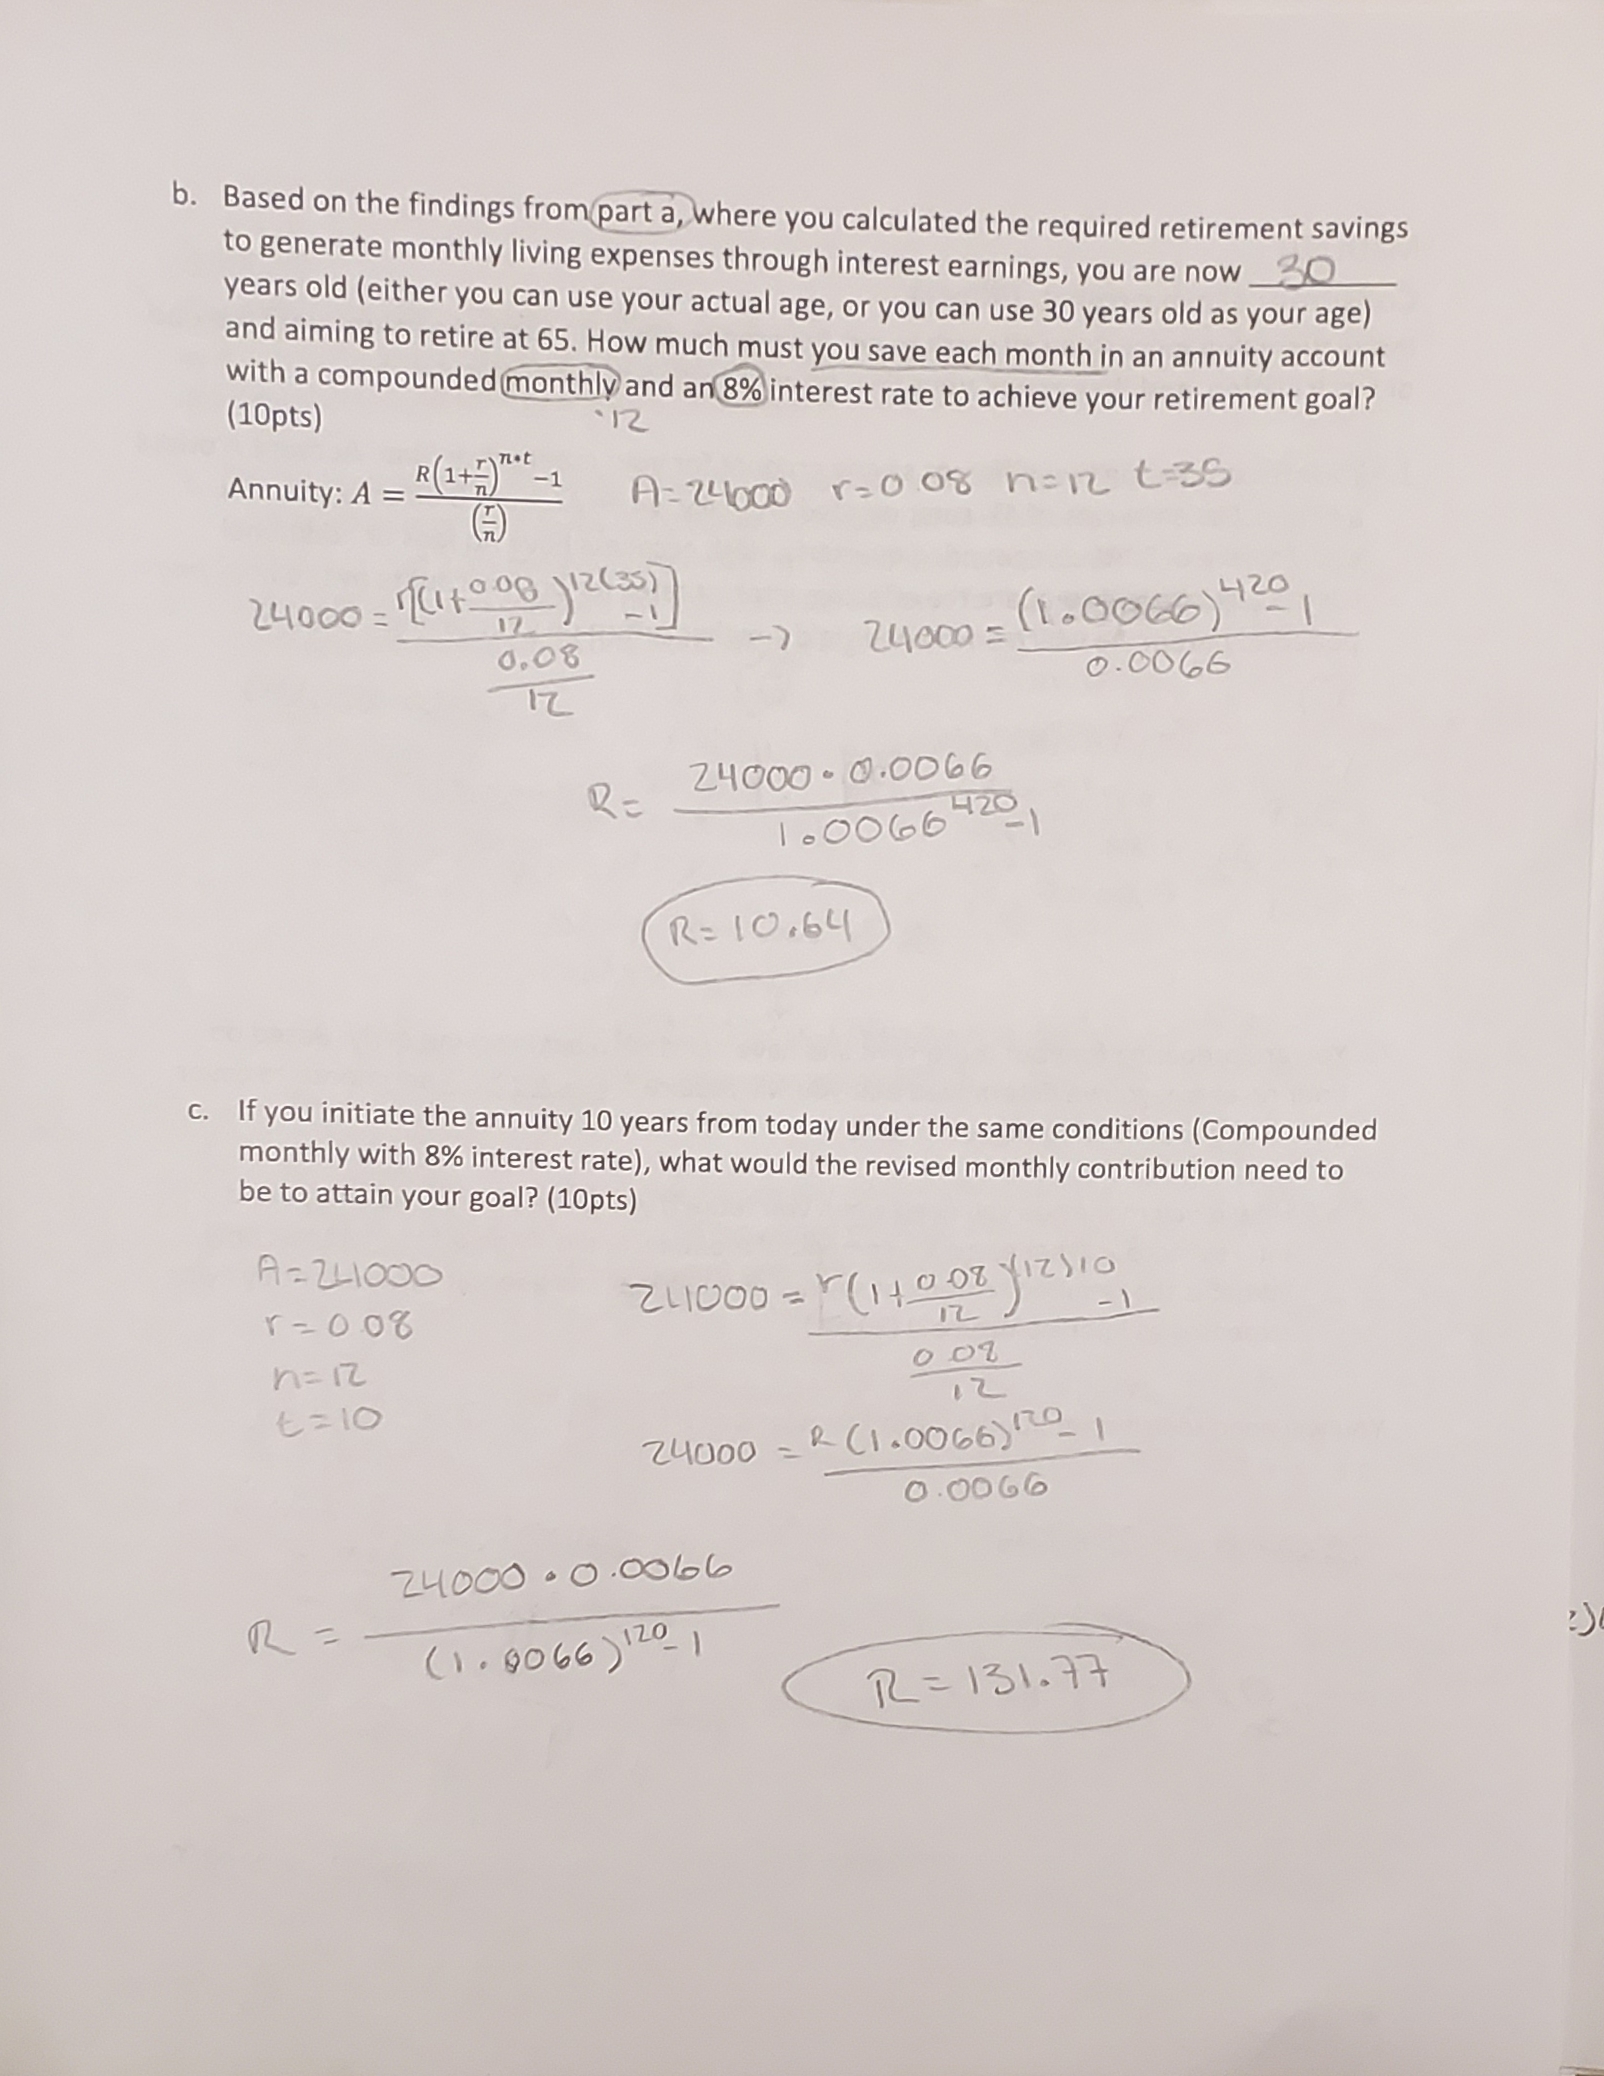 b. Based on the findings from part a, where you calculated the required retirement savings
to generate monthly living expenses through interest earnings, you are now 30
years old (either you can use your actual age, or you can use 30 years old as your age)
and aiming to retire at 65. How much must you save each month in an annuity account
with a compounded monthly and an 8% interest rate to achieve your retirement goal?
(10pts) 12
Annuity: A = R(1+r/n)^n•t -1 / (r/n) A=24000 r=0.08 n=12 t=35
24000 = r[(1+0.08/12)^12(35) -1] / 0.08/12 -> 24000 = (1.0066)^420 -1 / 0.0066
R= 24000 • 0.0066 / 1.0066^420 -1
R= 10.64
c. If you initiate the annuity 10 years from today under the same conditions (Compounded
monthly with 8% interest rate), what would the revised monthly contribution need to
be to attain your goal? (10pts)
A=24000
r=0.08
n=12
t=10
24000 = r(1+0.08/12)^(12)10 -1 / 0.08/12
24000 = R(1.0066)^120 -1 / 0.0066
R = 24000 • 0.0066 / (1.0066)^120 -1
R = 131.77